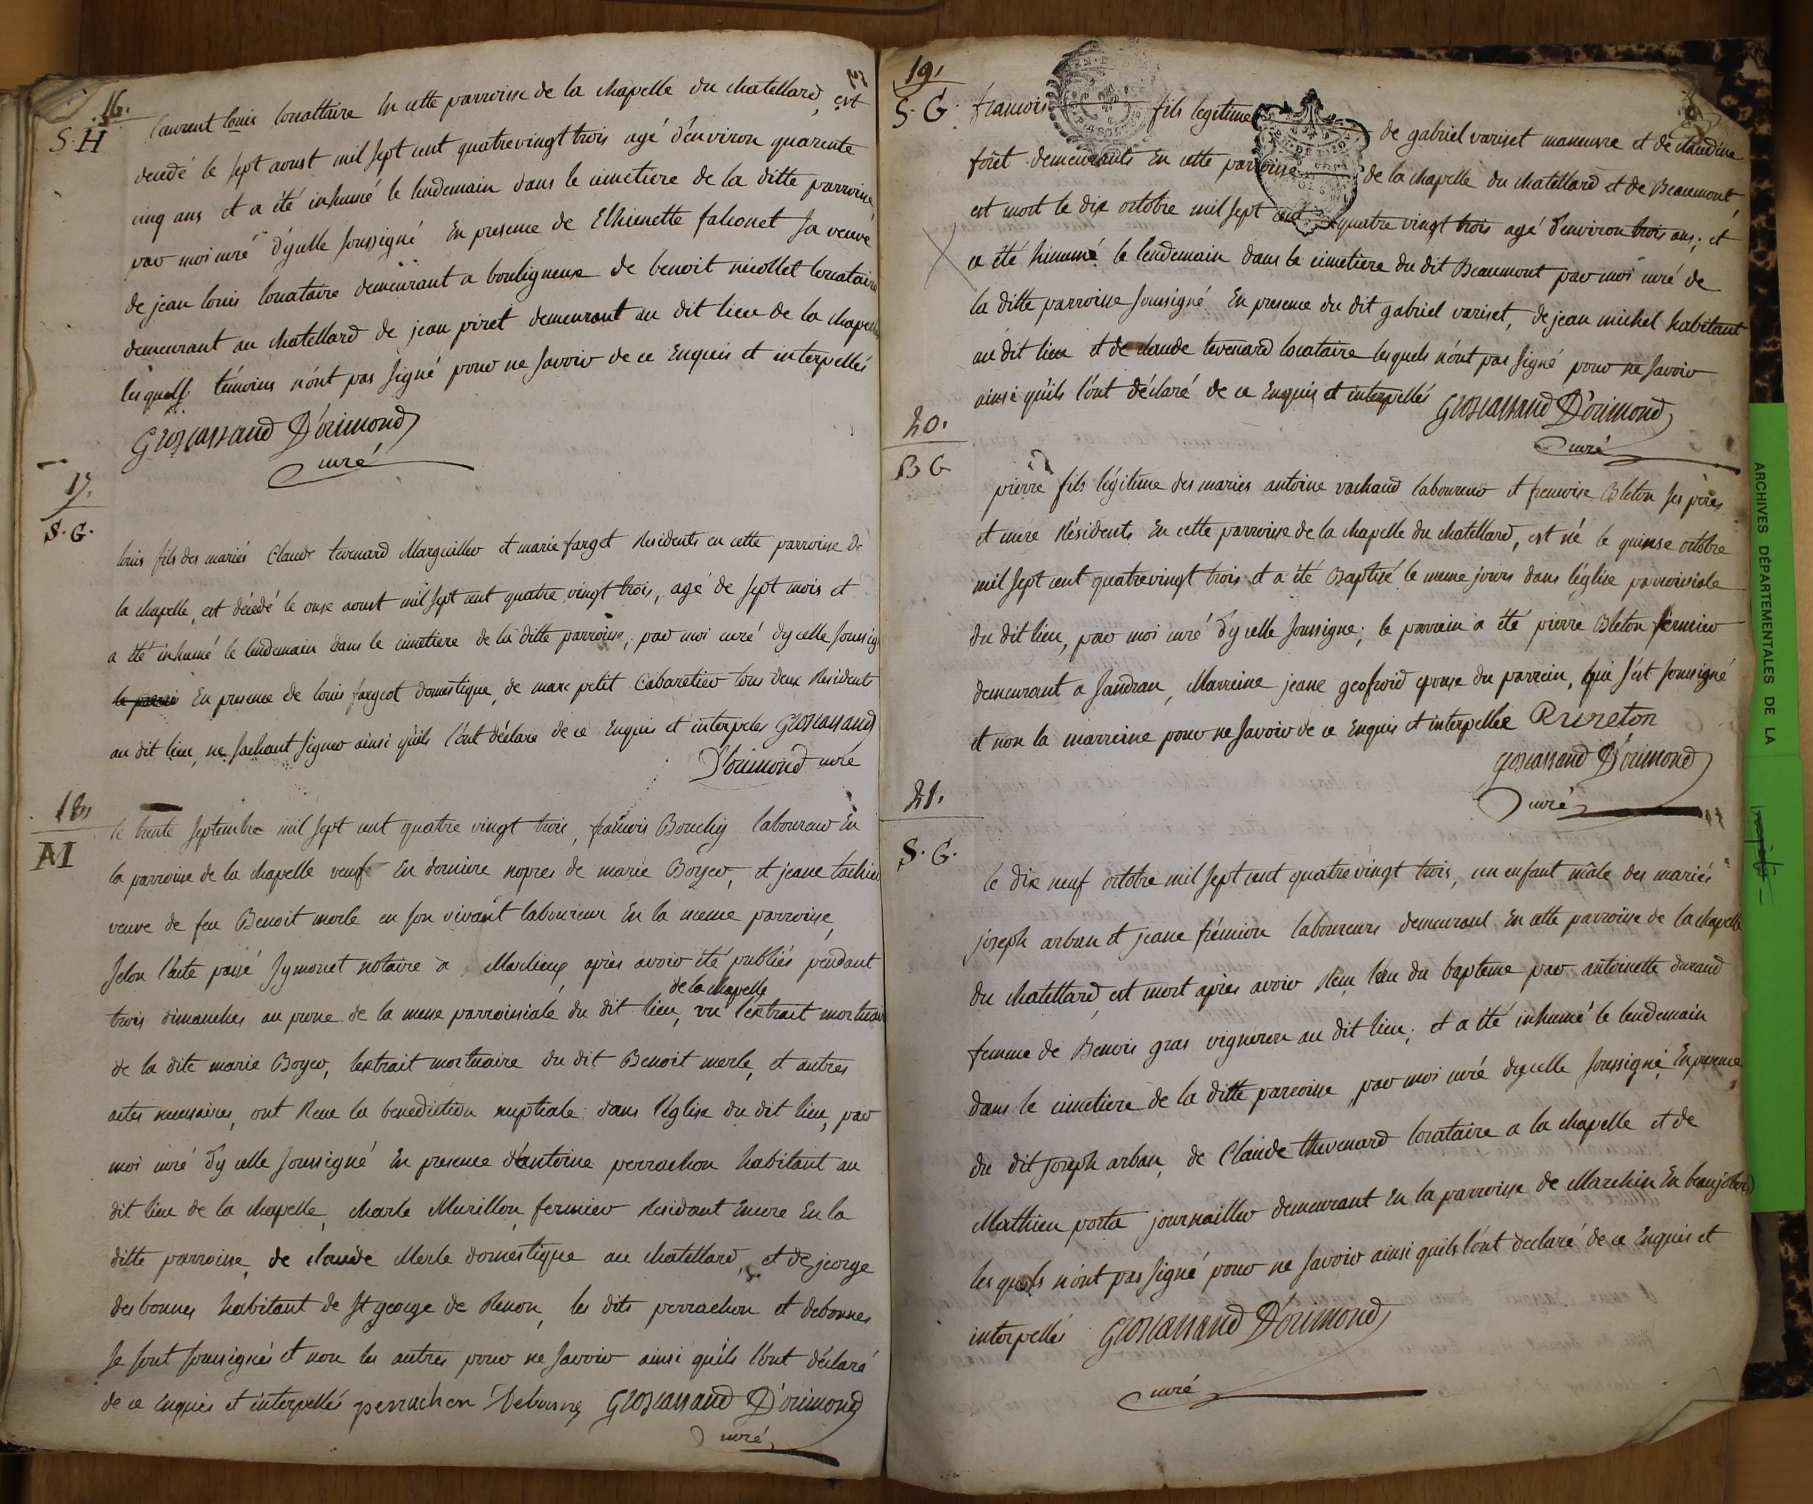 16.
S. H
laurent louis locattaire En cette parroisse de la chapelle du chatellard, est
decedé le sept aoust mil sept cent quatrevingt trois agé d'environ quarente
cinq ans et a été inhumé le lendemain dans le cimetiere de la ditte parroisse,
par moi curé d'ycelle soussigné En presence de Ethienette falconet sa veuve
de jean louis locataire demeurant a bouligneux de benoit nicollet locataire
demeurant au chatellard de jean piret demeurant au dit lieu de la chapelle
lesquels témoins n'ont pas signé pour ne savoir de ce Enquis et interpellés
Groscassand D'orimond
curé
17.
S. G.
louis fils des mariés Claude tevenard Marguillier et marie farget Residents en cette parroisse de
la chapelle, est décédé le onse aoust mil sept cent quatre vingt trois, agé de sept mois et
a été inhumé le lendemain dans le cimetiere de la ditte parroisse, par moi curé dycelle soussig
En presence de louis fargeot domestique, de marc petit Cabaretier tous deux Residents
au dit lieu, ne sachant signer ainsi quils l'ont déclare de ce Enquis et interpelés Groscassand
D'orimond curé
18.
M
le trente septembre mil sept cent quatre vingt trois, francois Bouchy laboureur En
la parroisse de la chapelle veuf En derniere nopces de marie Boyer, et jeane
veuve de feu Benoit merle en son vivant laboureur En la meme parroisse,
selon l'acte passé Symonet notaire a Marlieux, après avoir été publiés pendant
de la chapelle
trois dimanches au prone de la messe parroissiale du dit lieu, vu l'extrait mortuaire
de la dite marie Boyer, lextrait mortuaire du dit Benoit merle, et autres
actes necessaires, ont Recu la benediction nuptiale dans l'église du dit lieu, par
moi curé dy celle soussigné En presence d'antoine perrachon habitant au
dit lieu de la chapelle, charle Murillon fermier Residant Encore En la
ditte parroisse, de claude Merle domestique au chatellard, et de george
desbonnes habitant de St george de Renon, les dits perrachon et debonnes
se sont soussignés et non les autres pour ne savoir ainsi quils l'ont déclaré
de ce Enquis et interpellés perrachon Debonne Groscassand D'orimond
curé
19.
S. G.
francois fils legitime de gabriel variset maneuvre et de claudine
forêt demeurants En cette parroisse de la chapelle du chatellard et de Beaumont,
est mort le dix octobre mil sept cent quatre vingt trois agé d'environ trois ans; et
a été hinumé le lendemain dans le cimetiere du dit Beaumont par moi curé de
la ditte parroisse soussigné En presence du dit gabriel variset, de jean michel habitant
au dit lieu et de claude tevenard locataire lesquels n'ont pas signé pour ne savoir
ainsi quils l'ont déclaré de ce Enquis et interpellés Groscassand D'orimond
curé
20.
B G
pierre fils légitime des mariés antoine vachaud laboureur et francoise Bleton ses pères
et mere Résidents En cette parroisse de la chapelle du chatellard, est né le quinse octobre
mil sept cent quatrevingt trois et a été Baptisé le meme jours dans l'église parroissiale
du dit lieu, par moi curé dycelle soussigné; le parrein a été pierre Bleton fermier
demeurant a sandran, Marreine jeane geofroid epouse du parrein, qui s'est soussigné
et non la marreine pour ne savoir de ce Enquis et interpellée
Groscassand D'orimond
curé
21.
S. G.
le dix neuf octobre mil sept cent quatre vingt trois, un enfant mâle des mariés
joseph arban et jeane frémion laboureurs demeurant En cette parroisse de la chapelle
du chatellard, est mort apies avoir Recu l'eau du bapteme par antoinette durand
femme de Benois gras vigneron au dit lieu; et a été inhumé le lendemain
dans le cimetiere de la ditte parroisse par moi curé dycelle soussigné, En presence
du dit joseph arban, de Claude thevenard locataire a la chapelle et de
Mathieu porta journaillier demeurant En la parroisse de Marchin En beaujolois
lesquels n'ont pas signé pour ne savoir ainsi quils l'ont declaré de ce Enquis et
interpellés Groscassand D'orimond
curé
ARCHIVES DÉPARTEMENTALES DE LA